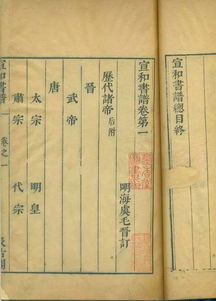 宣和書譜總目終
宣和書譜卷第一
明海虞毛晉訂
歷代諸帝后附
晉
武帝
唐
太宗 明皇
肅宗 代宗
宣和書譜
卷之一
汲古閣